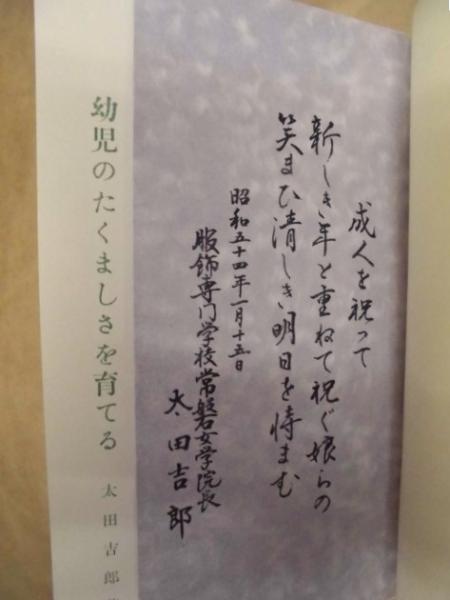 成人を祝って
新しき年と重ねて祝ぐ娘らの
笑まひ清しき明日を恃まむ
昭和五十四年一月十五日
服飾専門学校常磐女学院長
太田吉郎
幼児のたくましさを育てる
太田吉郎